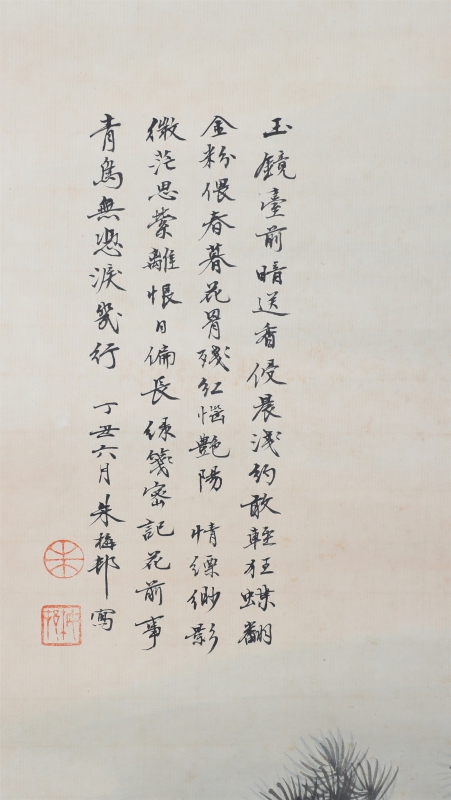 玉鏡臺前暗送香侵晨淺約敢輕狂蝶翻
金粉偎春暮花罥殘紅惱艷陽 情縹緲影
微茫思縈離恨日偏長綠箋密記花前事
青鳥無憑淚幾行 丁丑六月朱梅邨寫
朱